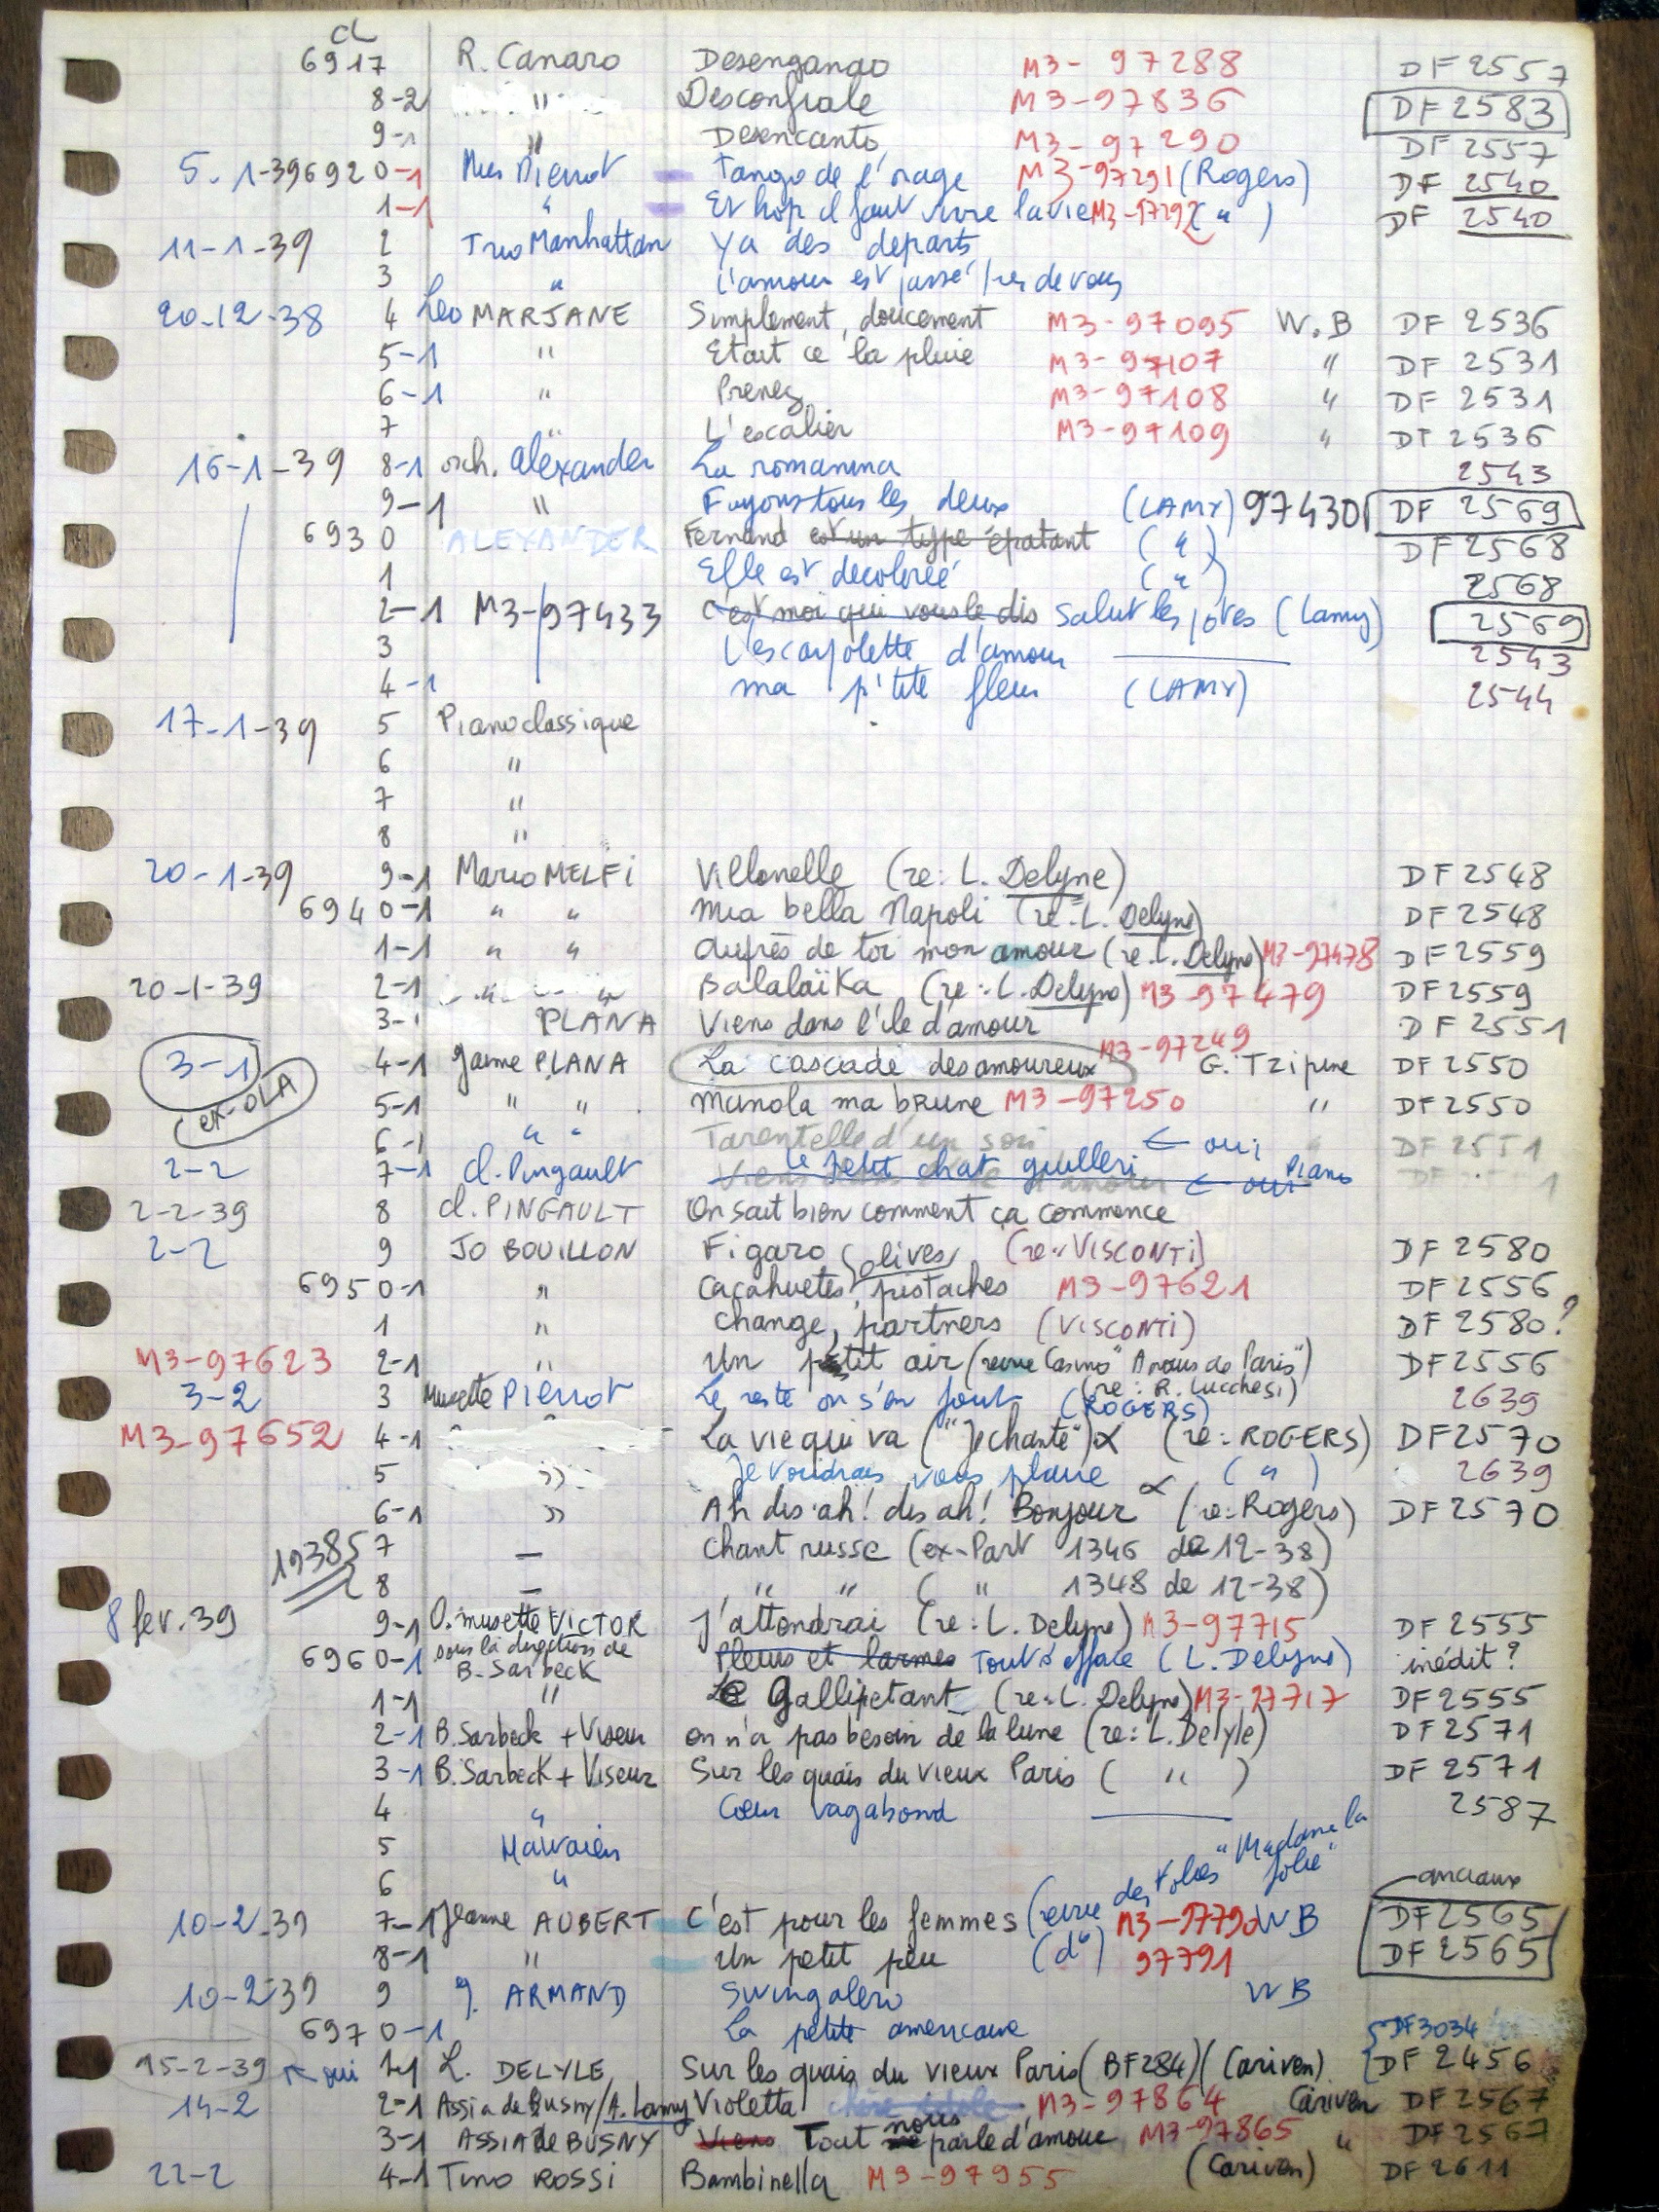 CL
6917 R. Canaro Desengano M3-97288 DF 2557
8-2 " Desconfiale M3-97836 DF 2583
9-1 " Desencanto M3-97290 DF 2557
5-1-39 6920-1 Mus Pierrot Tango de l'orage M3-97291 (Rogers) DF 2540
1-1 " Et hop il faut vivre la vie M3-97292 (") DF 2540
11-1-39 2 Trio Manhattan Y a des départs
3 " L'amour est passé près de vous
20-12-38 4 Leo MARJANE Simplement, doucement M3-97095 W.B DF 2536
5-1 " Etait ce la pluie M3-97107 " DF 2531
6-1 " Prenez M3-97108 " DF 2531
7 " L'escalier M3-97109 " DF 2536
16-1-39 8-1 orch. Alexander La romanina 2543
9-1 " Fuyons tous les deux (LAMY) 97430 DF 2569
6930 ALEXANDER Fernand est un type épatant (") DF 2568
1 Elle est décolorée (") 2568
2-1 M3-97433 C'est moi qui vous le dis Salut les potes (Lamy) 2569
3 L'escarpolette d'amour 2543
4-1 ma p'tite fleur (LAMY) 2544
17-1-39 5 Piano classique
6 "
7 "
8 "
20-1-39 9-1 Mario MELFi Villanelle (re: L. Delyne) DF 2548
6940-1 " " Mia bella Napoli (re: L. Delyne) DF 2548
1-1 " " Auprès de toi mon amour (re: L. Delyne) M3-97478 DF 2559
20-1-39 2-1 " " Balalaïka (re: L. Delyne) M3-97479 DF 2559
3-1 PLANA Viens dans l'île d'amour DF 2551
3-1 4-1 Jaime PLANA La cascade des amoureux M3-97249 G. Tzipine DF 2550
ex-OLA 5-1 " " Manola ma brune M3-97250 " DF 2550
6-1 " " Tarentelle d'un soir ← oui DF 2551
2-2 7-1 Cl. Pingault Le petit chat guilleri ← oui Piano
2-2-39 8 Cl. PINGAULT On sait bien comment ça commence
2-2 9 JO BOUILLON Figaro (re: VISCONTi) DF 2580
6950-1 " Cacahuetes, olives, pistaches M3-97621 DF 2556
1 " Change, partners (VISCONTi) DF 2580?
M3-97623 2-1 " Un petit air (revue Casino "Amours de Paris") DF 2556
(re: R. Lucchesi)
3-2 3 Musette Pierrot Le reste on s'en fout (ROGERS) 2639
M3-97652 4-1 La vie qui va ("Je chante") α (re: ROGERS) DF 2570
5 " Je voudrais vous plaire α (") 2639
6-1 " Ah dis ah! dis ah! Bonjour (re: Rogers) DF 2570
19385 7 — Chant russe (ex-Part 1346 de 12-38)
8 — " " ( " 1348 de 12-38)
8 fev. 39 9-1 O. musette VICTOR J'attendrai (re: L. Delyne) M3-97715 DF 2555
6960-1 sous la direction de B. Sarbeck Pleurs et larmes Tout s'efface (L. Delyne) inédit?
1-1 " Le Gallipetant (re: L. Delyne) M3-97717 DF 2555
2-1 B. Sarbeck + Viseur on n'a pas besoin de la lune (re: L. Delyle) DF 2571
3-1 B. Sarbeck + Viseur Sur les quais du vieux Paris ( " ) DF 2571
4 " Coeur vagabond 2587
5 Hawaien
6 "
10-2-39 7-1 Jeanne AUBERT C'est pour les femmes (revue des Folies "Madame la folie" M3-97790 WB anciaux DF 2565
8-1 " Un petit peu (d°) 97791 DF 2565
10-2-39 9 J. ARMAND Swingalero WB
6970-1 La petite americaine DF 3034
15-2-39 ← oui 1-1 L. DELYLE Sur les quais du vieux Paris (BF284) (Cariven) DF 2456
14-2 2-1 Assia de Busny/A. Lamy Violetta chère idole M3-97864 Cariven DF 2567
3-1 ASSIA de BUSNY Viens Tout nous parle d'amour M3-97865 " DF 2567
22-2 4-1 Tino ROSSi Bambinella M3-97955 (Cariven) DF 2611